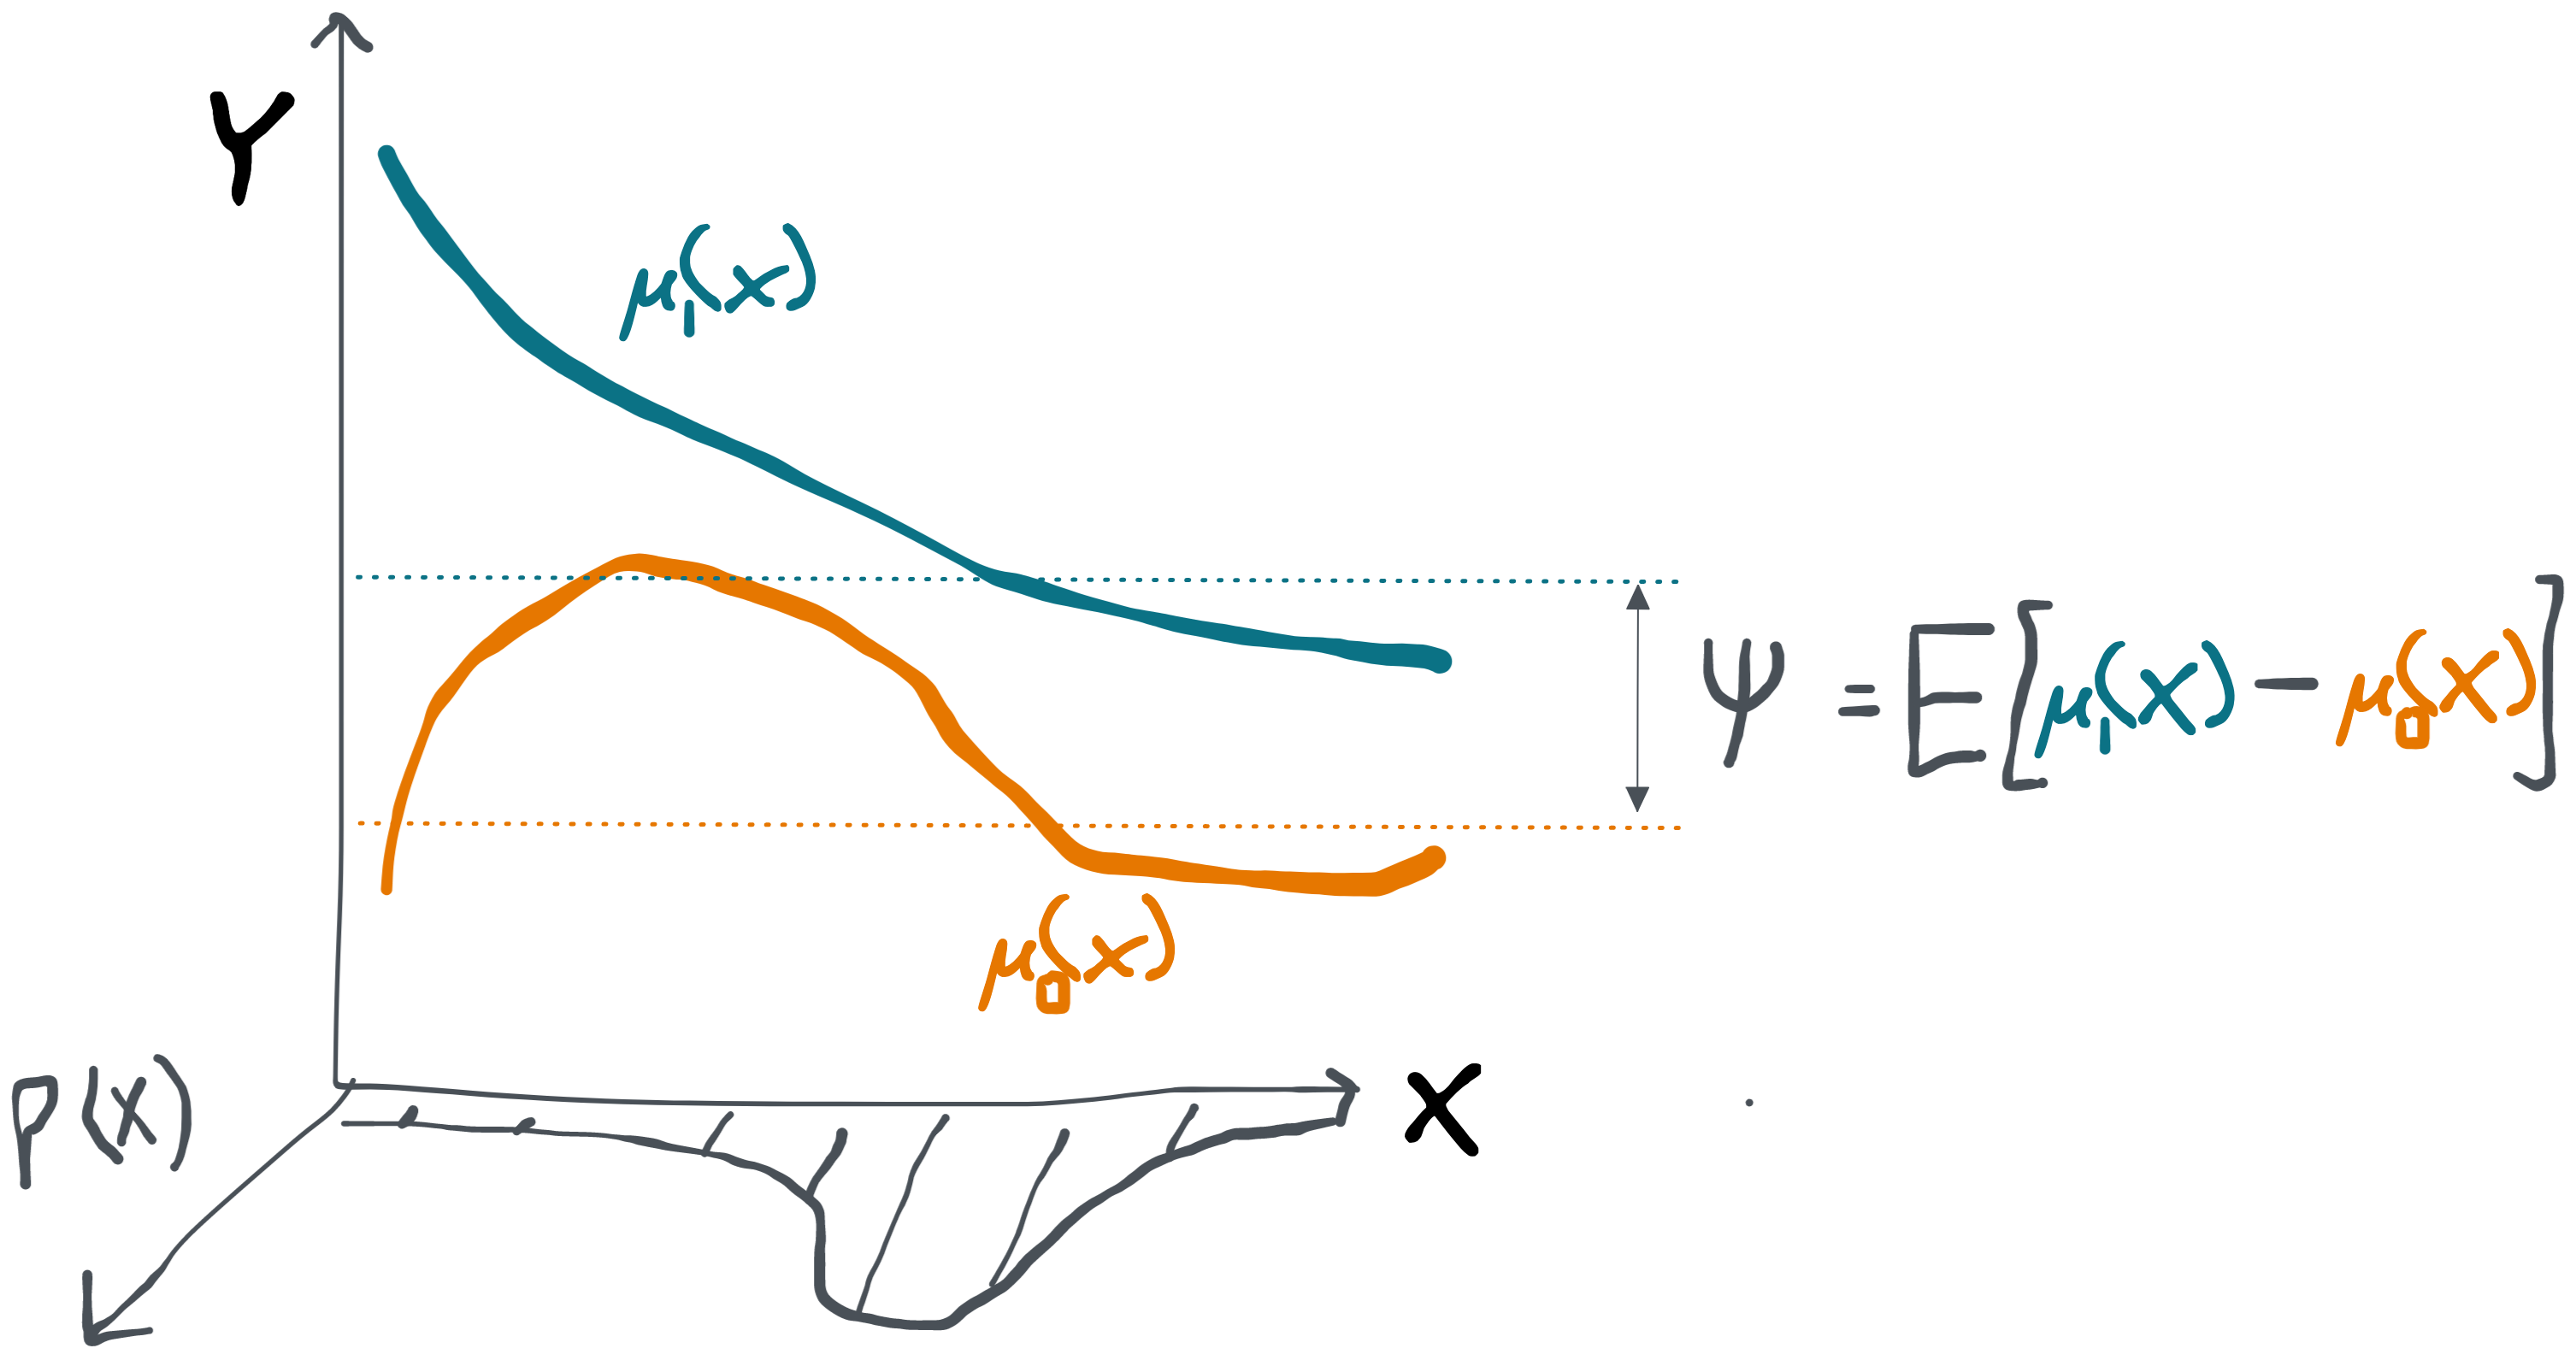 Y
μ₁(x)
Ψ = E[μ₁(X) − μ₀(X)]
μ₀(x)
P(X)
X